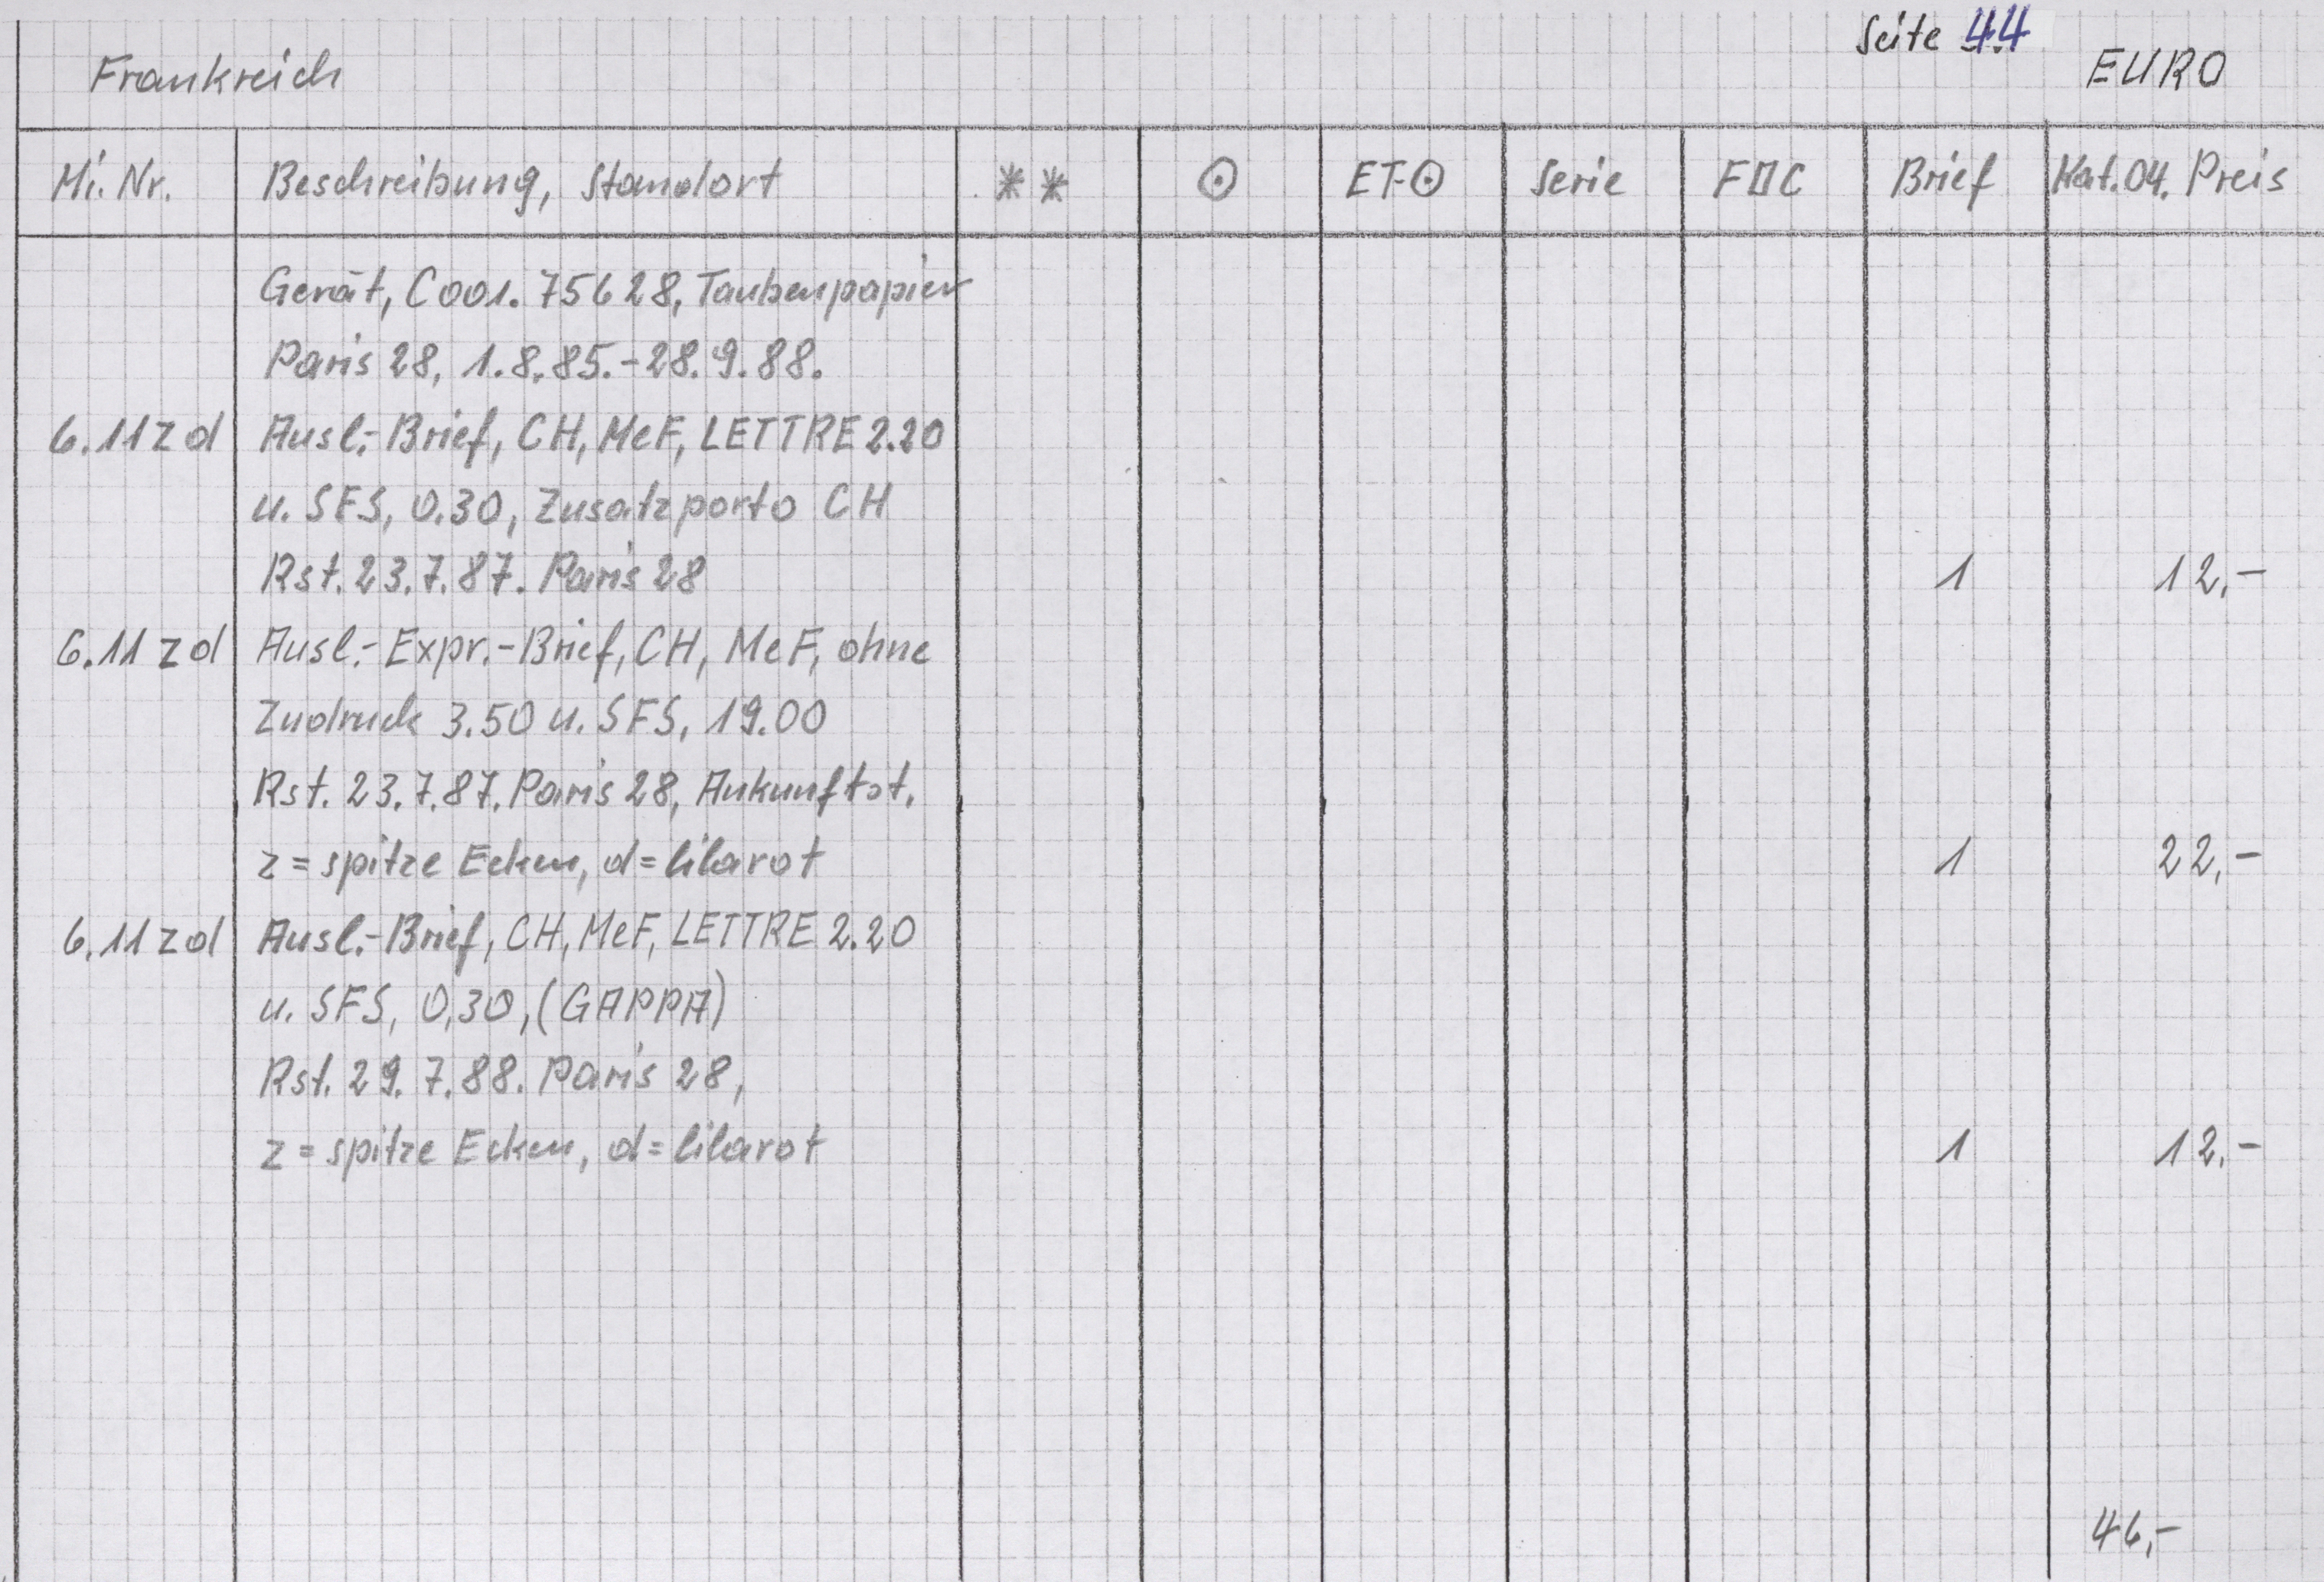 Seite 44
Frankreich EURO
Mi. Nr. Beschreibung, Standort ** ⊙ ET-⊙ Serie FDC Brief Kat.04. Preis
Gerät, C001.75628, Taubenpapier
Paris 28, 1.8.85.-28.9.88.
6.11 z d Ausl.-Brief, CH, MeF, LETTRE 2.20
u. SFS, 0.30, Zusatzporto CH
Rst. 23.7.87. Paris 28 1 12,-
6.11 z d Ausl.-Expr.-Brief, CH, MeF, ohne
Zudruck 3.50 u. SFS, 19.00
Rst. 23.7.87. Paris 28, Ankunftst.
z = spitze Ecken, d = lilarot 1 22,-
6.11 z d Ausl.-Brief, CH, MeF, LETTRE 2.20
u. SFS, 0,30, (GAPPA)
Rst. 29.7.88. Paris 28,
z = spitze Ecken, d = lilarot 1 12,-
46,-